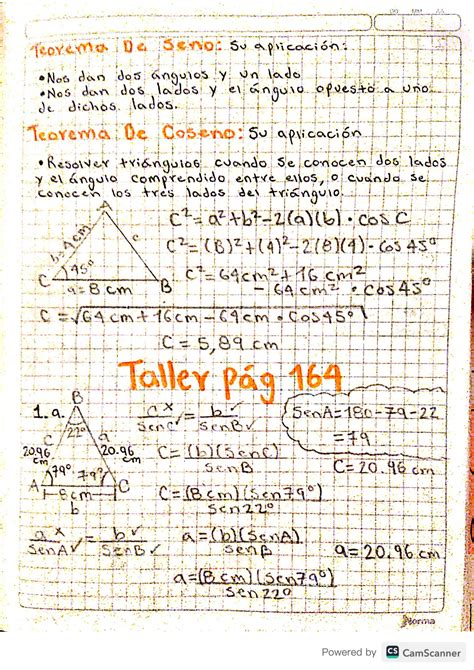 Teorema De Seno: Su aplicación:
• Nos dan dos ángulos y un lado
• Nos dan dos lados y el ángulo opuesto a uno
de dichos lados.
Teorema De Coseno: Su aplicación
• Resolver triángulos cuando se conocen dos lados
y el ángulo comprendido entre ellos, o cuando se
conocen los tres lados del triángulo.
A
b=4cm
c
C
45°
a=8cm
B
C²=a²+b²-2(a)(b)·cos C
C²=(8)²+(4)²-2(8)(4)·Cos 45°
C²=64cm²+16cm²
-64cm²·Cos45°
C=√64cm+16cm-64cm·Cos45°
C=5,89cm
Taller pág 164
1. a.
B
22°
c
a
20.96
cm
20.96
cm
79°
79?
A
C
8cm
b
c x / Sen C ✓ = b ✓ / Sen B ✓
C=(b)(Sen C) / Sen B
C=(8cm)(Sen79°) / Sen 22°
SenA=180-79-22
=79
C=20.96cm
a x / Sen A ✓ = b ✓ / Sen B ✓
a=(b)(Sen A) / Sen B
a=20.96cm
a=(8cm)(Sen79°) / Sen 22°
Norma
Powered by CS CamScanner